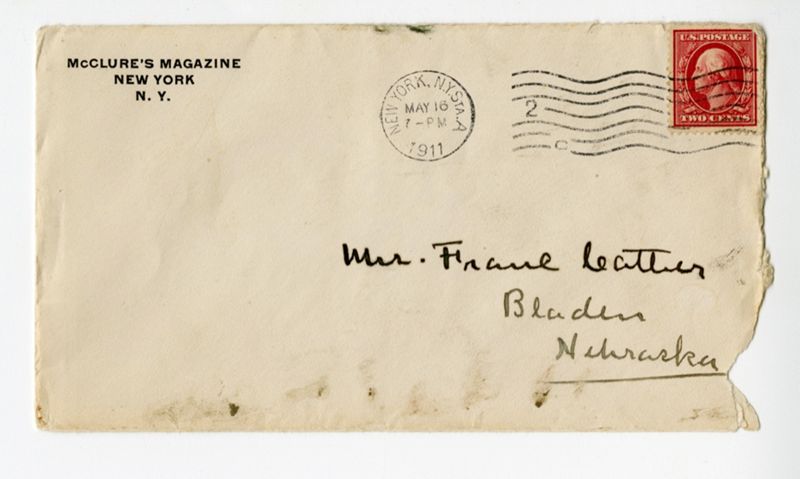 McCLURE'S MAGAZINE
NEW YORK
N. Y.
NEW YORK, N.Y. STA. A
MAY 16
7-PM
1911
2
C
U.S. POSTAGE
TWO CENTS
Mrs. Franc Cather
Bladen
Nebraska